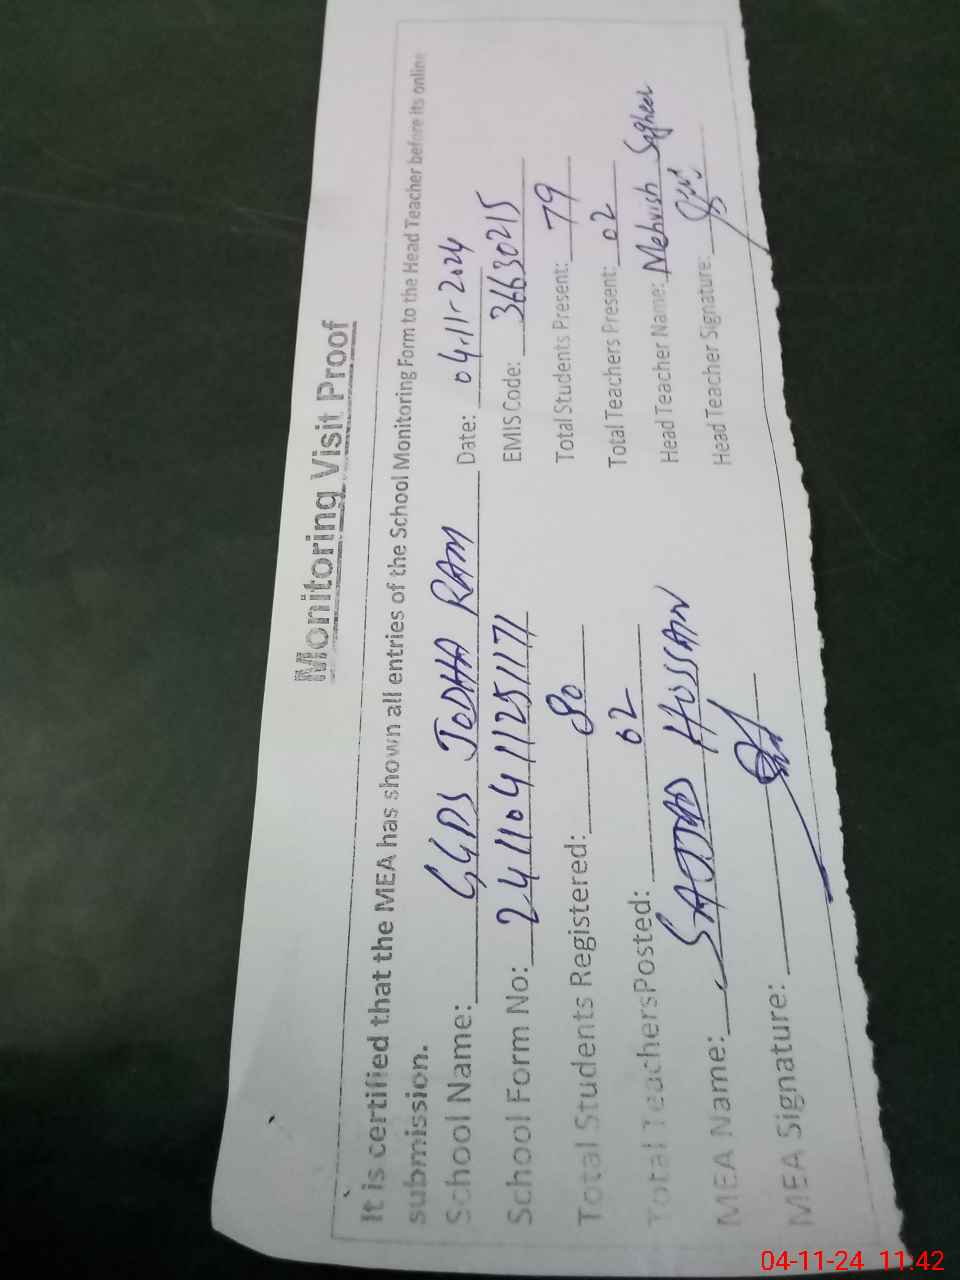 Monitoring Visit Proof
It is certified that the MEA has shown all entries of the School Monitoring Form to the Head Teacher before its online
submission.
School Name: GGPS JODHA RAM Date: 04-11-2024
School Form No: 241104112511171 EMIS Code: 36630215
Total Students Registered: 80 Total Students Present: 79
Total TeachersPosted: 02 Total Teachers Present: 02
MEA Name: SAJJAD HUSSAIN Head Teacher Name: Mehvish Sagheer
MEA Signature: Head Teacher Signature:
04-11-24 11:42